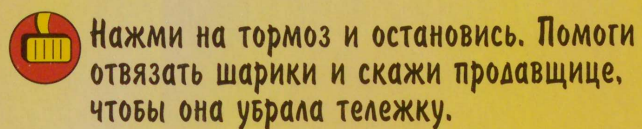 Нажми на тормоз и остановись. Помоги
отвязать шарики и скажи продавщице,
чтобы она убрала тележку.